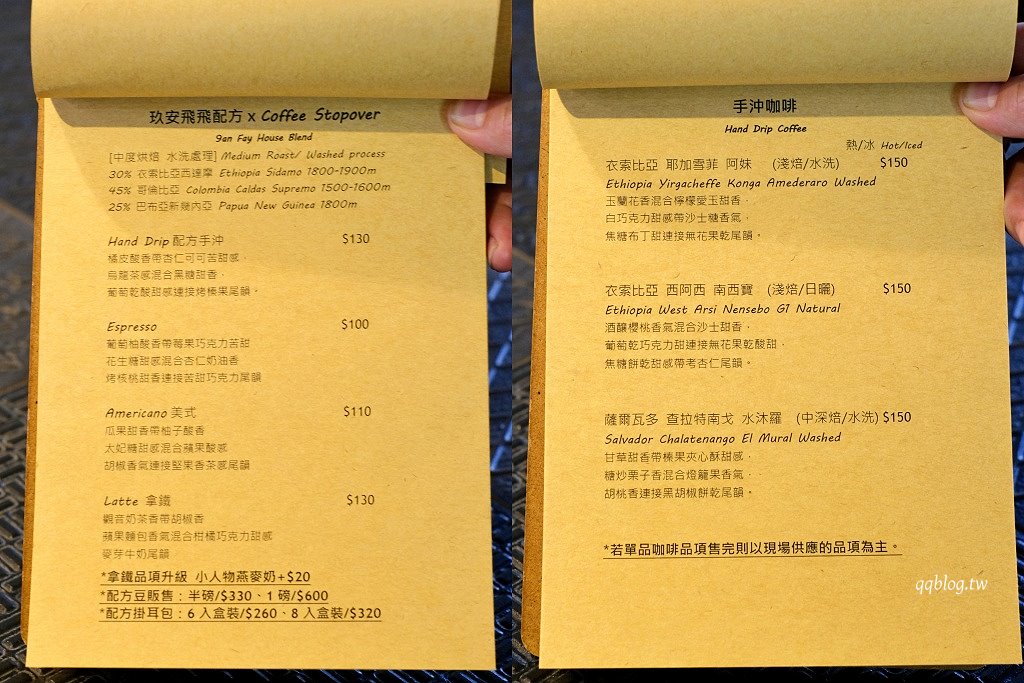 玖安飛飛配方 x Coffee Stopover
9an Fay House Blend
[中度烘焙 水洗處理] Medium Roast/ Washed process
30% 衣索比亞西達摩 Ethiopia Sidamo 1800-1900m
45% 哥倫比亞 Colombia Caldas Supremo 1500-1600m
25% 巴布亞新幾內亞 Papua New Guinea 1800m
Hand Drip 配方手沖 $130
橘皮酸香帶杏仁可可苦甜感．
烏龍茶感混合黑糖甜香．
葡萄乾酸甜感連接烤榛果尾韻。
Espresso $100
葡萄柚酸香帶莓果巧克力苦甜
花生糖甜感混合杏仁奶油香
烤核桃甜香連接苦甜巧克力尾韻
Americano 美式 $110
瓜果甜香帶柚子酸香
太妃糖甜感混合蘋果酸感
胡椒香氣連接堅果香茶感尾韻
Latte 拿鐵 $130
觀音奶茶香帶胡椒香
蘋果麵包香氣混合柑橘巧克力甜感
麥芽牛奶尾韻
*拿鐵品項升級 小人物燕麥奶+$20
*配方豆販售：半磅/$330、1 磅/$600
*配方掛耳包：6 入盒裝/$260、8 入盒裝/$320
手沖咖啡
Hand Drip Coffee
熱/冰 Hot/Iced
衣索比亞 耶加雪菲 阿妹 (淺焙/水洗) $150
Ethiopia Yirgacheffe Konga Amederaro Washed
玉蘭花香混合檸檬愛玉甜香．
白巧克力甜感帶沙士糖香氣．
焦糖布丁甜連接無花果乾尾韻。
衣索比亞 西阿西 南西寶 (淺焙/日曬) $150
Ethiopia West Arsi Nensebo G1 Natural
酒釀櫻桃香氣混合沙士甜香．
葡萄乾巧克力甜連接無花果乾酸甜．
焦糖餅乾甜感帶考杏仁尾韻。
薩爾瓦多 查拉特南戈 水沐羅 (中深焙/水洗) $150
Salvador Chalatenango El Mural Washed
甘草甜香帶榛果夾心酥甜感．
糖炒栗子香混合燈籠果香氣．．
胡桃香連接黑胡椒餅乾尾韻。
*若單品咖啡品項售完則以現場供應的品項為主。
qqblog.tw